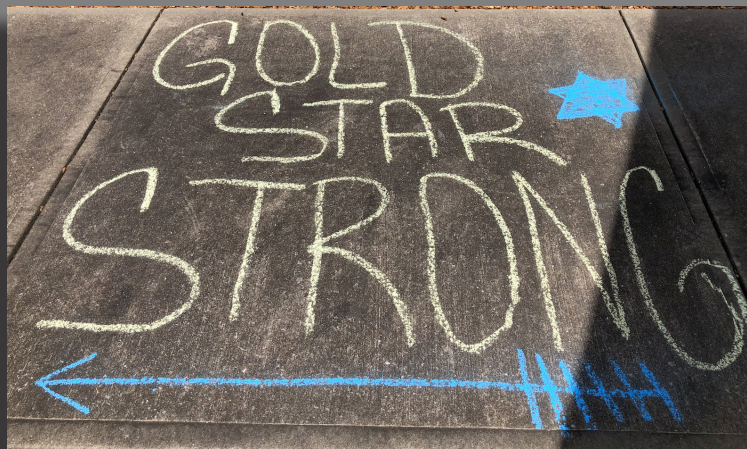 GOLD
STAR
STRONG